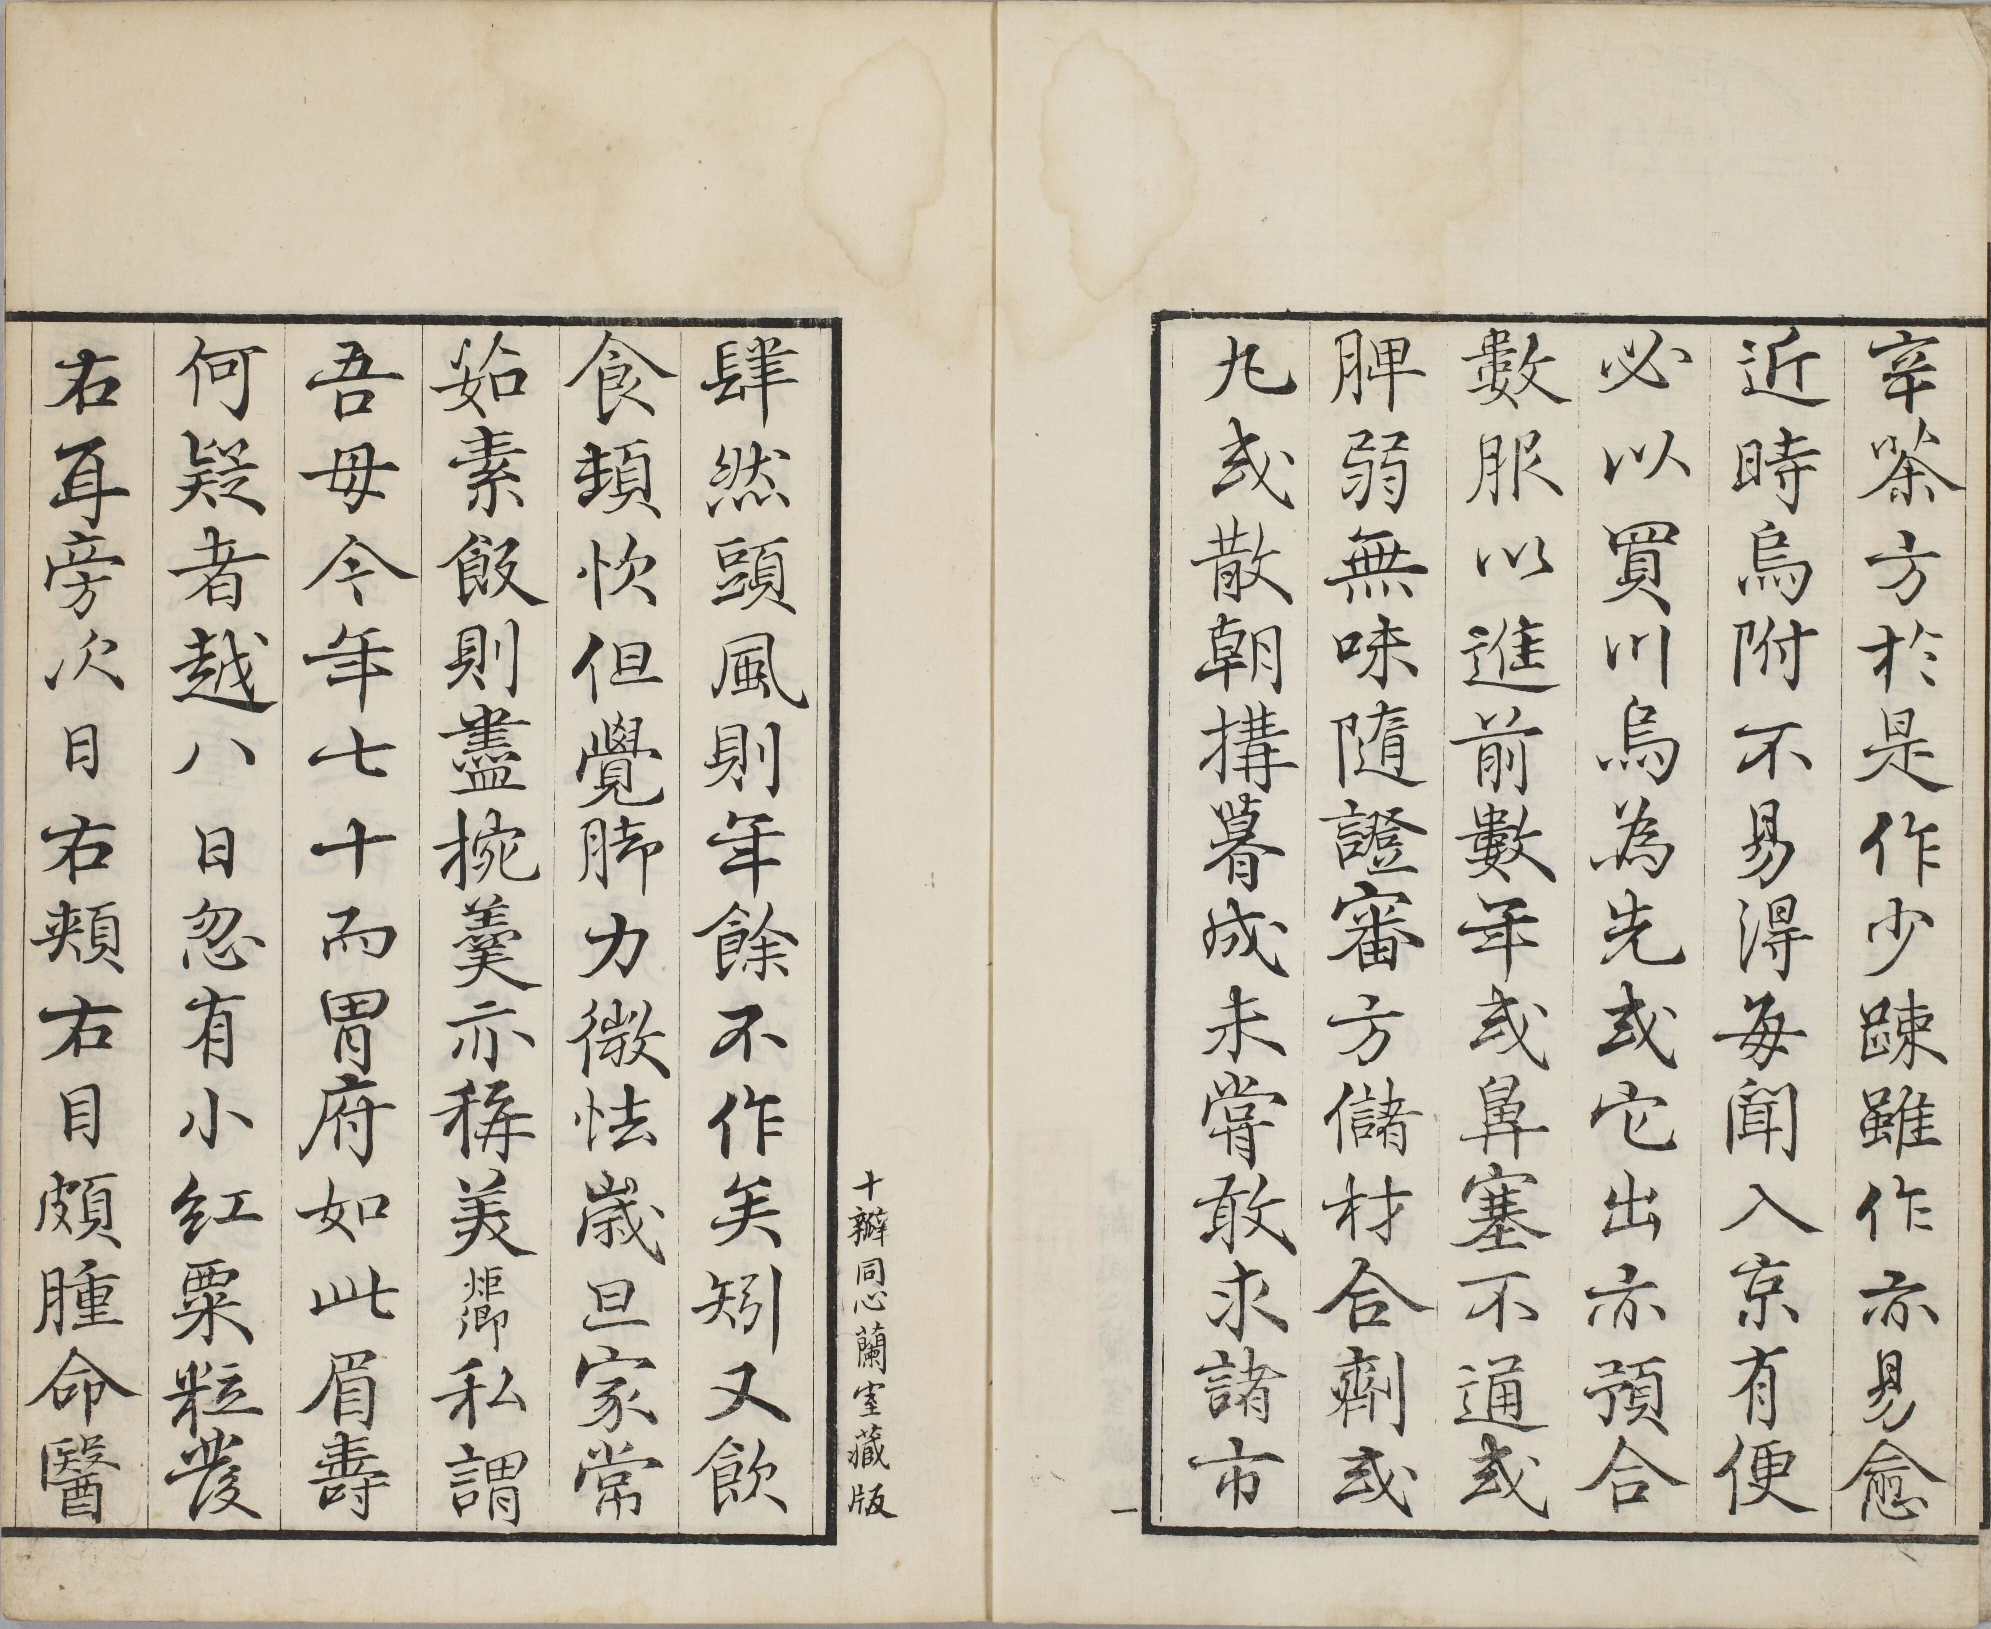 辛荼方於是作少踈雖作亦易愈
近時烏附不易得每聞入京有便
必以買川烏為先或它出亦預合
數服以進前數年或鼻塞不通或
脾弱無味隨證審方儲材合劑或
丸或散朝搆暮成未嘗敢求諸市
一
十瓣同心蘭室藏版
肆然頭風則年餘不作矣矧又飲
食頓快但覺脚力微怯歲旦家常
茹素飯則盡椀羹亦稱美炬卿私謂
吾母今年七十而胃府如此眉壽
何疑者越八日忽有小紅粟粒發
右耳旁次日右頰右目頗腫命醫